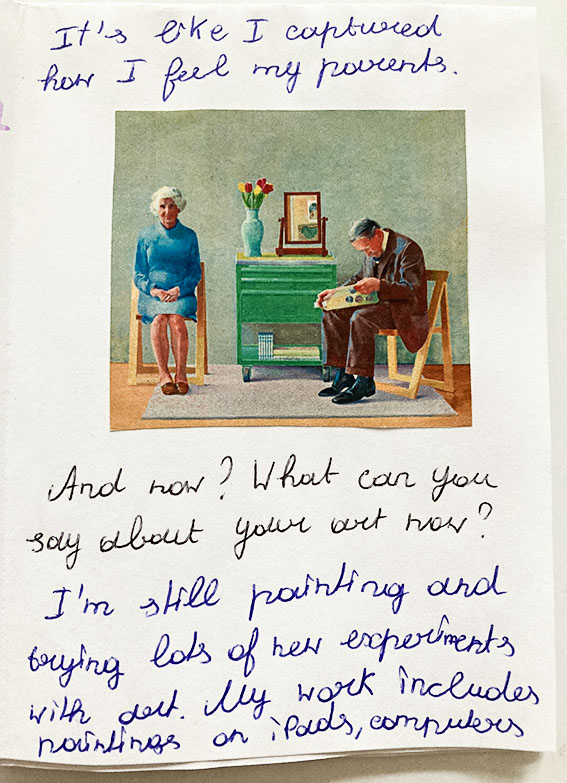 It's like I captured
how I feel my parents.
And now? What can you
say about your art now?
I'm still painting and
trying lots of new experiments
with art. My work includes
paintings on iPads, computers